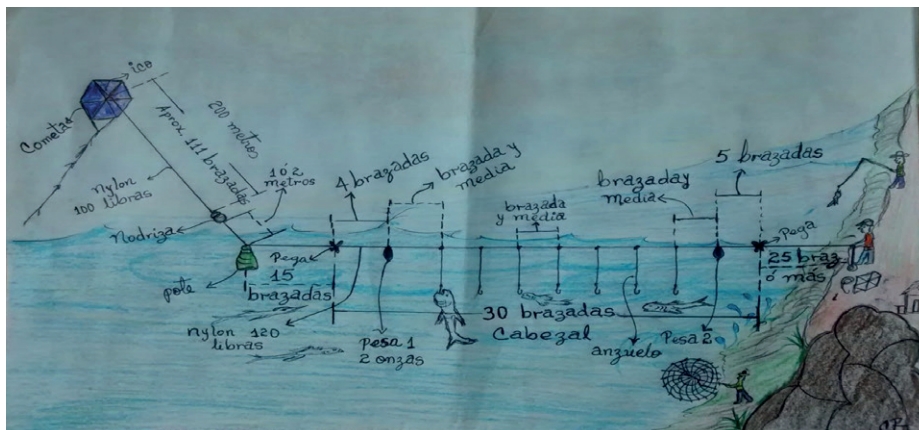 ico
Cometa
200 metros
Aprox. 111 brazadas
nylon
100 libras
1 ó 2
metros
Nodriza
pote
4 brazadas
brazada y
media
brazada
y media
brazada y
media
5 brazadas
Pega
15
brazadas
Pega
25 braz
ó más
nylon 120
libras
Pesa 1
2 onzas
30 brazadas
Cabezal
anzuelo
Pesa 2